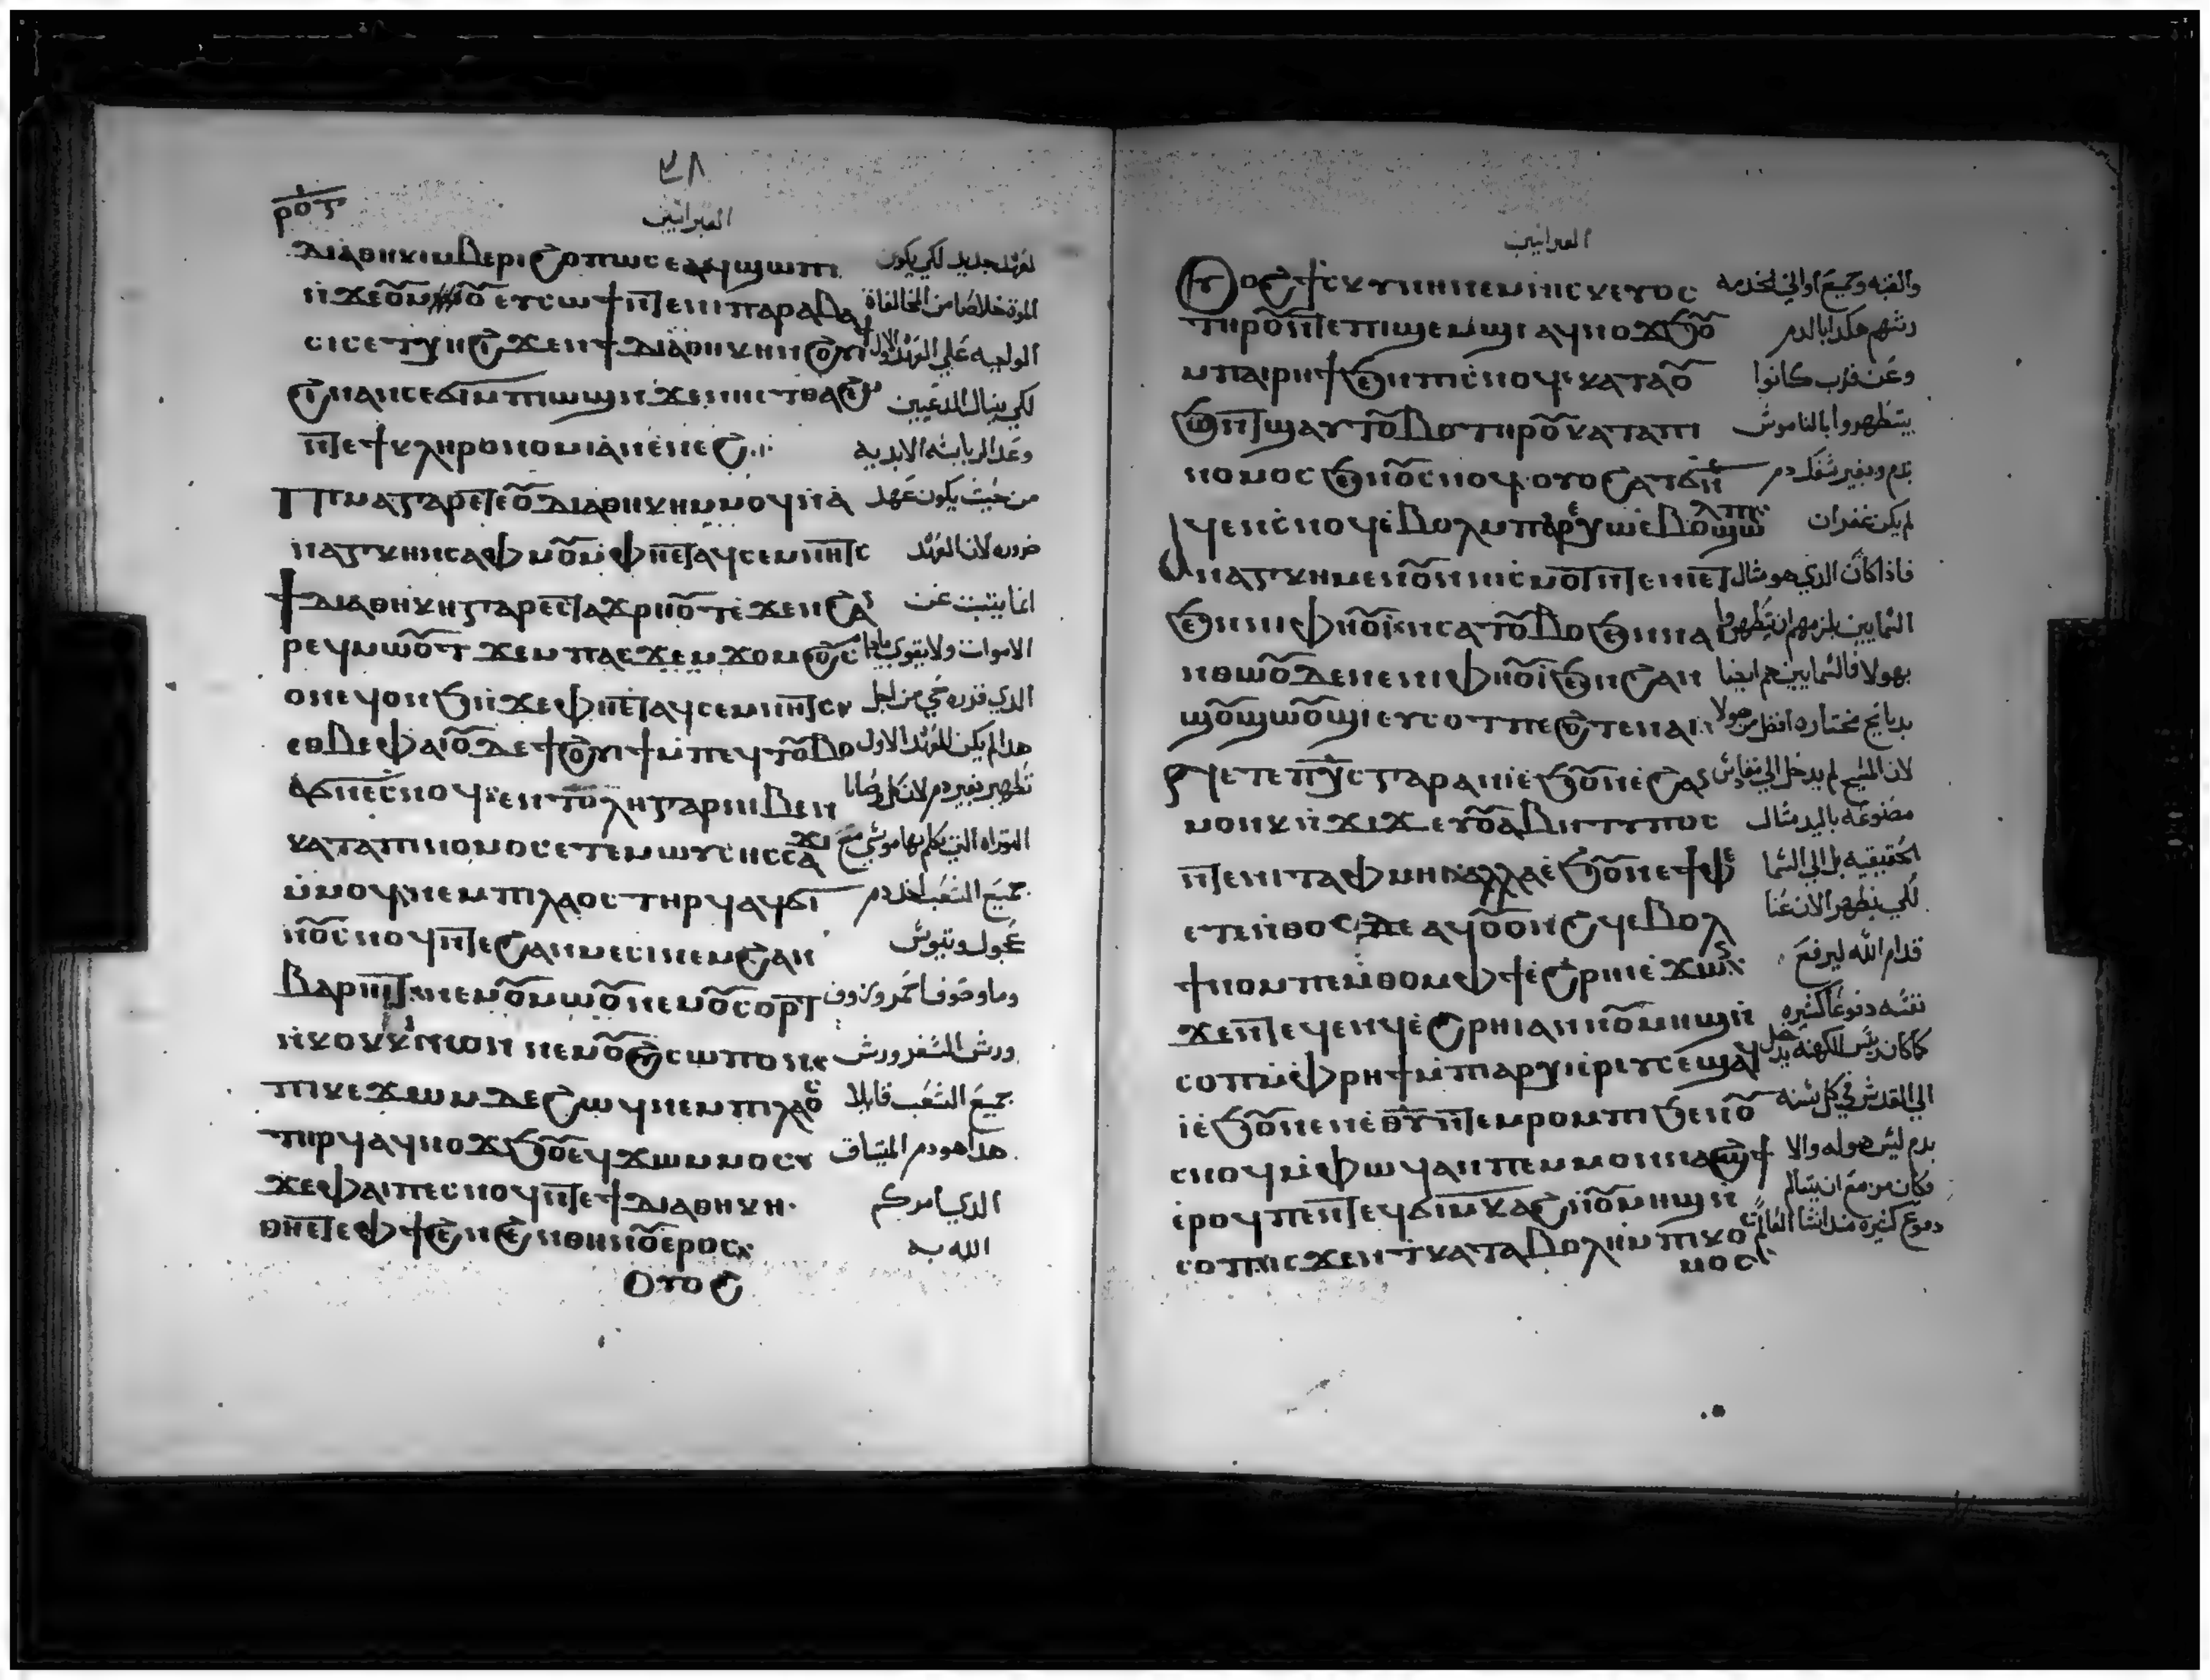 ⲣⲟⲋ
العبرانيين
ⲇⲓⲁⲑⲏⲕⲏⲙⲃⲉⲣⲓϩⲟⲡⲱⲥⲉⲁϥϣⲱⲡⲓ لعهد جديد لكي يكون
ⲛϫⲉⲟⲩⲙⲟⲩⲉⲩⲥⲱϯⲛⲧⲉⲛⲓⲡⲁⲣⲁⲃⲁ الموة خلاصا من المخالفاة
ⲥⲓⲥⲉⲧⲭⲏϩⲓϫⲉⲛϯⲇⲓⲁⲑⲏⲕⲏⲛϩⲟⲩⲓϯ المولجيه علي العهد الاول
ϩⲓⲛⲁⲛⲥⲉϭⲓⲙⲡⲓⲱϣⲛϫⲉⲛⲏⲉⲧⲑⲁϩⲉⲙ لكي ينال المدعيين
ⲛⲧⲉϯⲕⲗⲏⲣⲟⲛⲟⲙⲓⲁⲛⲉⲛⲉϩ وعد الرباسه الابديه
ⲡⲓⲙⲁⲅⲁⲣⲉⲧⲉⲟⲩⲇⲓⲁⲑⲏⲕⲏⲙⲙⲟϥⲛⲁ من حيث يكون عهد
ⲛⲁⲅⲕⲏⲛⲥⲁⲫⲙⲟⲩⲙⲫⲏⲉⲧⲁϥⲥⲉⲙⲛⲏⲧⲥ ضروره لان العهد
ϯⲇⲓⲁⲑⲏⲕⲏⲅⲁⲣⲉⲥⲧⲁϫⲣⲏⲟⲩⲧϩⲓϫⲉⲛϩⲁⲛ انما يتبت عن
ⲣⲉϥⲙⲱⲟⲩⲧ الاموات ولا يقوي
ⲟⲛⲉϥⲟⲛϧⲛϫⲉⲫⲏⲉⲧⲁϥⲥⲉⲙⲛⲏⲧⲥ الذي قرره حي من اجل
ⲉⲑⲃⲉⲫⲁⲓⲟⲩⲇⲉϯϩⲟⲩⲓϯⲙⲡⲉϥⲧⲟⲩⲃⲟ هدا لم يكن للعهد الاول
ⲁϭⲛⲉⲥⲛⲟϥⲉⲛⲧⲟⲗⲏⲅⲁⲣⲛⲓⲃⲉⲛ تطهير بغير دم لان كل وصايا
ⲕⲁⲧⲁⲡⲓⲛⲟⲙⲟⲥⲉⲧⲉⲙⲱⲩⲥⲏⲥⲥⲁϫⲓ التوراه التي تكلم بها موسي مع
ⲙⲙⲟϥⲛⲉⲙⲡⲓⲗⲁⲟⲥⲧⲏⲣϥⲁϥϭⲓ جميع الشعب اخذ دم
ⲛⲟⲩⲥⲛⲟϥⲛⲧⲉϩⲁⲛⲙⲉⲥⲓⲛⲉⲙϩⲁⲛ عجول وتيوس
ⲃⲁⲣⲏⲓⲧⲛⲉⲙⲟⲩⲙⲱⲟⲩⲛⲉⲙⲟⲩⲥⲟⲣⲧ وما وصوف احمر وزوف
ⲛⲕⲟⲕⲕⲓⲛⲟⲛⲛⲉⲙⲟⲩϩⲩⲥⲱⲡⲟⲛ ورش السفر ورش
ⲡⲓⲕⲉϫⲱⲙⲇⲉϩⲱϥⲛⲉⲙⲡⲓⲗⲁⲟⲥ جميع الشعب قايلا
ⲧⲏⲣϥⲁϥⲛⲟϫϧⲟⲩⲉϥϫⲱⲙⲙⲟⲥ هدا هو دم الميتاق
ϫⲉⲫⲁⲓⲡⲉⲥⲛⲟϥⲛⲧⲉϯⲇⲓⲁⲑⲏⲕⲏ الذي امركم
ⲑⲏⲉⲧⲉⲫϯϩⲉⲛϩⲉⲛⲑⲏⲛⲟⲩⲉⲣⲟⲥ الله به
ⲟⲩⲟϩ
العبرانيين
ⲟⲩⲟϩϯⲥⲕⲩⲛⲏⲛⲉⲙⲛⲓⲥⲕⲉⲩⲟⲥ والقبه وجميع اواني الخدمه
ⲧⲏⲣⲟⲩⲛⲧⲉⲡⲓϣⲉⲙϣⲓⲁϥⲛⲟϫϧⲟⲩ رشهم هكدا بالدم
ⲙⲡⲁⲓⲣⲏϯϧⲉⲛⲡⲓⲥⲛⲟϥⲕⲁⲧⲁⲟⲩ وعن قرب كانوا
ϧⲱⲛⲧϣⲁⲩⲧⲟⲩⲃⲟⲧⲏⲣⲟⲩⲕⲁⲧⲁⲡⲓ يتطهروا بالناموس
ⲛⲟⲙⲟⲥϧⲉⲛⲟⲩⲥⲛⲟϥⲟⲩⲟϩⲁⲧϭⲛⲉ بدم وبغير سفك دم
ϥⲉⲛⲥⲛⲟϥⲉⲃⲟⲗⲙⲡⲁⲣⲉⲭⲱⲉⲃⲟⲗϣⲱⲡⲓ لم يكن غفران
ⲁⲛⲁⲅⲕⲏⲙⲉⲛⲟⲩⲛⲛⲓⲥⲙⲟⲧⲛⲧⲉⲛⲏⲉⲧ فاذا كان الذي هو مثال
ϧⲉⲛⲛⲓⲫⲏⲟⲩⲓⲛⲥⲁⲧⲟⲩⲃⲟϧⲉⲛⲛⲁⲓ السمايين يلزمهم ان يتطهروا
ⲛⲑⲱⲟⲩⲇⲉⲛⲉⲛⲓⲫⲏⲟⲩⲓϧⲉⲛϩⲁⲛ بهولا فالسمايين هم ايضا
ϣⲟⲩϣⲱⲟⲩϣⲓⲉⲩⲥⲟⲧⲡⲉϩⲟⲧⲉⲛⲁⲓ بدبايح مختاره افضل من هولا
ⲉⲧⲉⲡⲭⲥⲅⲁⲣⲁⲛⲓⲉϧⲟⲩⲛⲉϩⲁⲛ لان المسيح لم يدخل الي مقادس
ⲙⲟⲩⲛⲕⲛϫⲓϫⲉⲩⲟⲩⲁⲃⲛⲧⲩⲡⲟⲥ مصنوعه باليد مثال
ⲛⲧⲉⲛⲓⲧⲁⲫⲙⲏⲓⲁⲗⲗⲁⲉϧⲟⲩⲛⲉⲧⲫⲉ الحقيقيه بل الي السما
ⲉⲧⲉⲛⲑⲟⲥⲇⲉⲁϥⲟⲩⲟⲛϩϥⲉⲃⲟⲗ لكي يظهر الان عنا
ϯⲛⲟⲩⲙⲡⲉⲙⲑⲟⲙⲫϯⲉϩⲣⲏⲓⲉϫⲱⲛ قدام الله ليرفع
ϫⲉⲛⲧⲉϥⲉⲛϥⲉϩⲣⲏⲓⲁⲛⲛⲟⲩⲙⲏϣⲛ نفسه دفوعا كثيره
ⲥⲟⲡⲙⲫⲣⲏϯⲙⲡⲓⲁⲣⲭⲓⲉⲣⲉⲩⲥⲉϣⲁϥ كما كان ريس الكهنه يدخل
ⲓⲉϧⲟⲩⲛⲉⲛⲉⲑⲩⲛⲧⲉⲙⲣⲟⲙⲡⲓϧⲉⲛⲟⲩ الي المقدس في كل سنه
ⲥⲛⲟϥⲙⲫⲱϥⲁⲛⲡⲉⲙⲙⲟⲛⲛⲁϩⲱϯ بدم ليس هو له والا
ⲉⲣⲟϥⲡⲉⲛⲧⲉϥϭⲓⲙⲕⲁϩⲛⲟⲩⲙⲏϣⲛ فكان مزمع ان يتالم
ⲥⲟⲡⲓⲥϫⲉⲛⲧⲕⲁⲧⲁⲃⲟⲗⲏⲙⲡⲓⲕⲟⲥ دفوع كثيره منذ انشا العالم
ⲙⲟⲥ